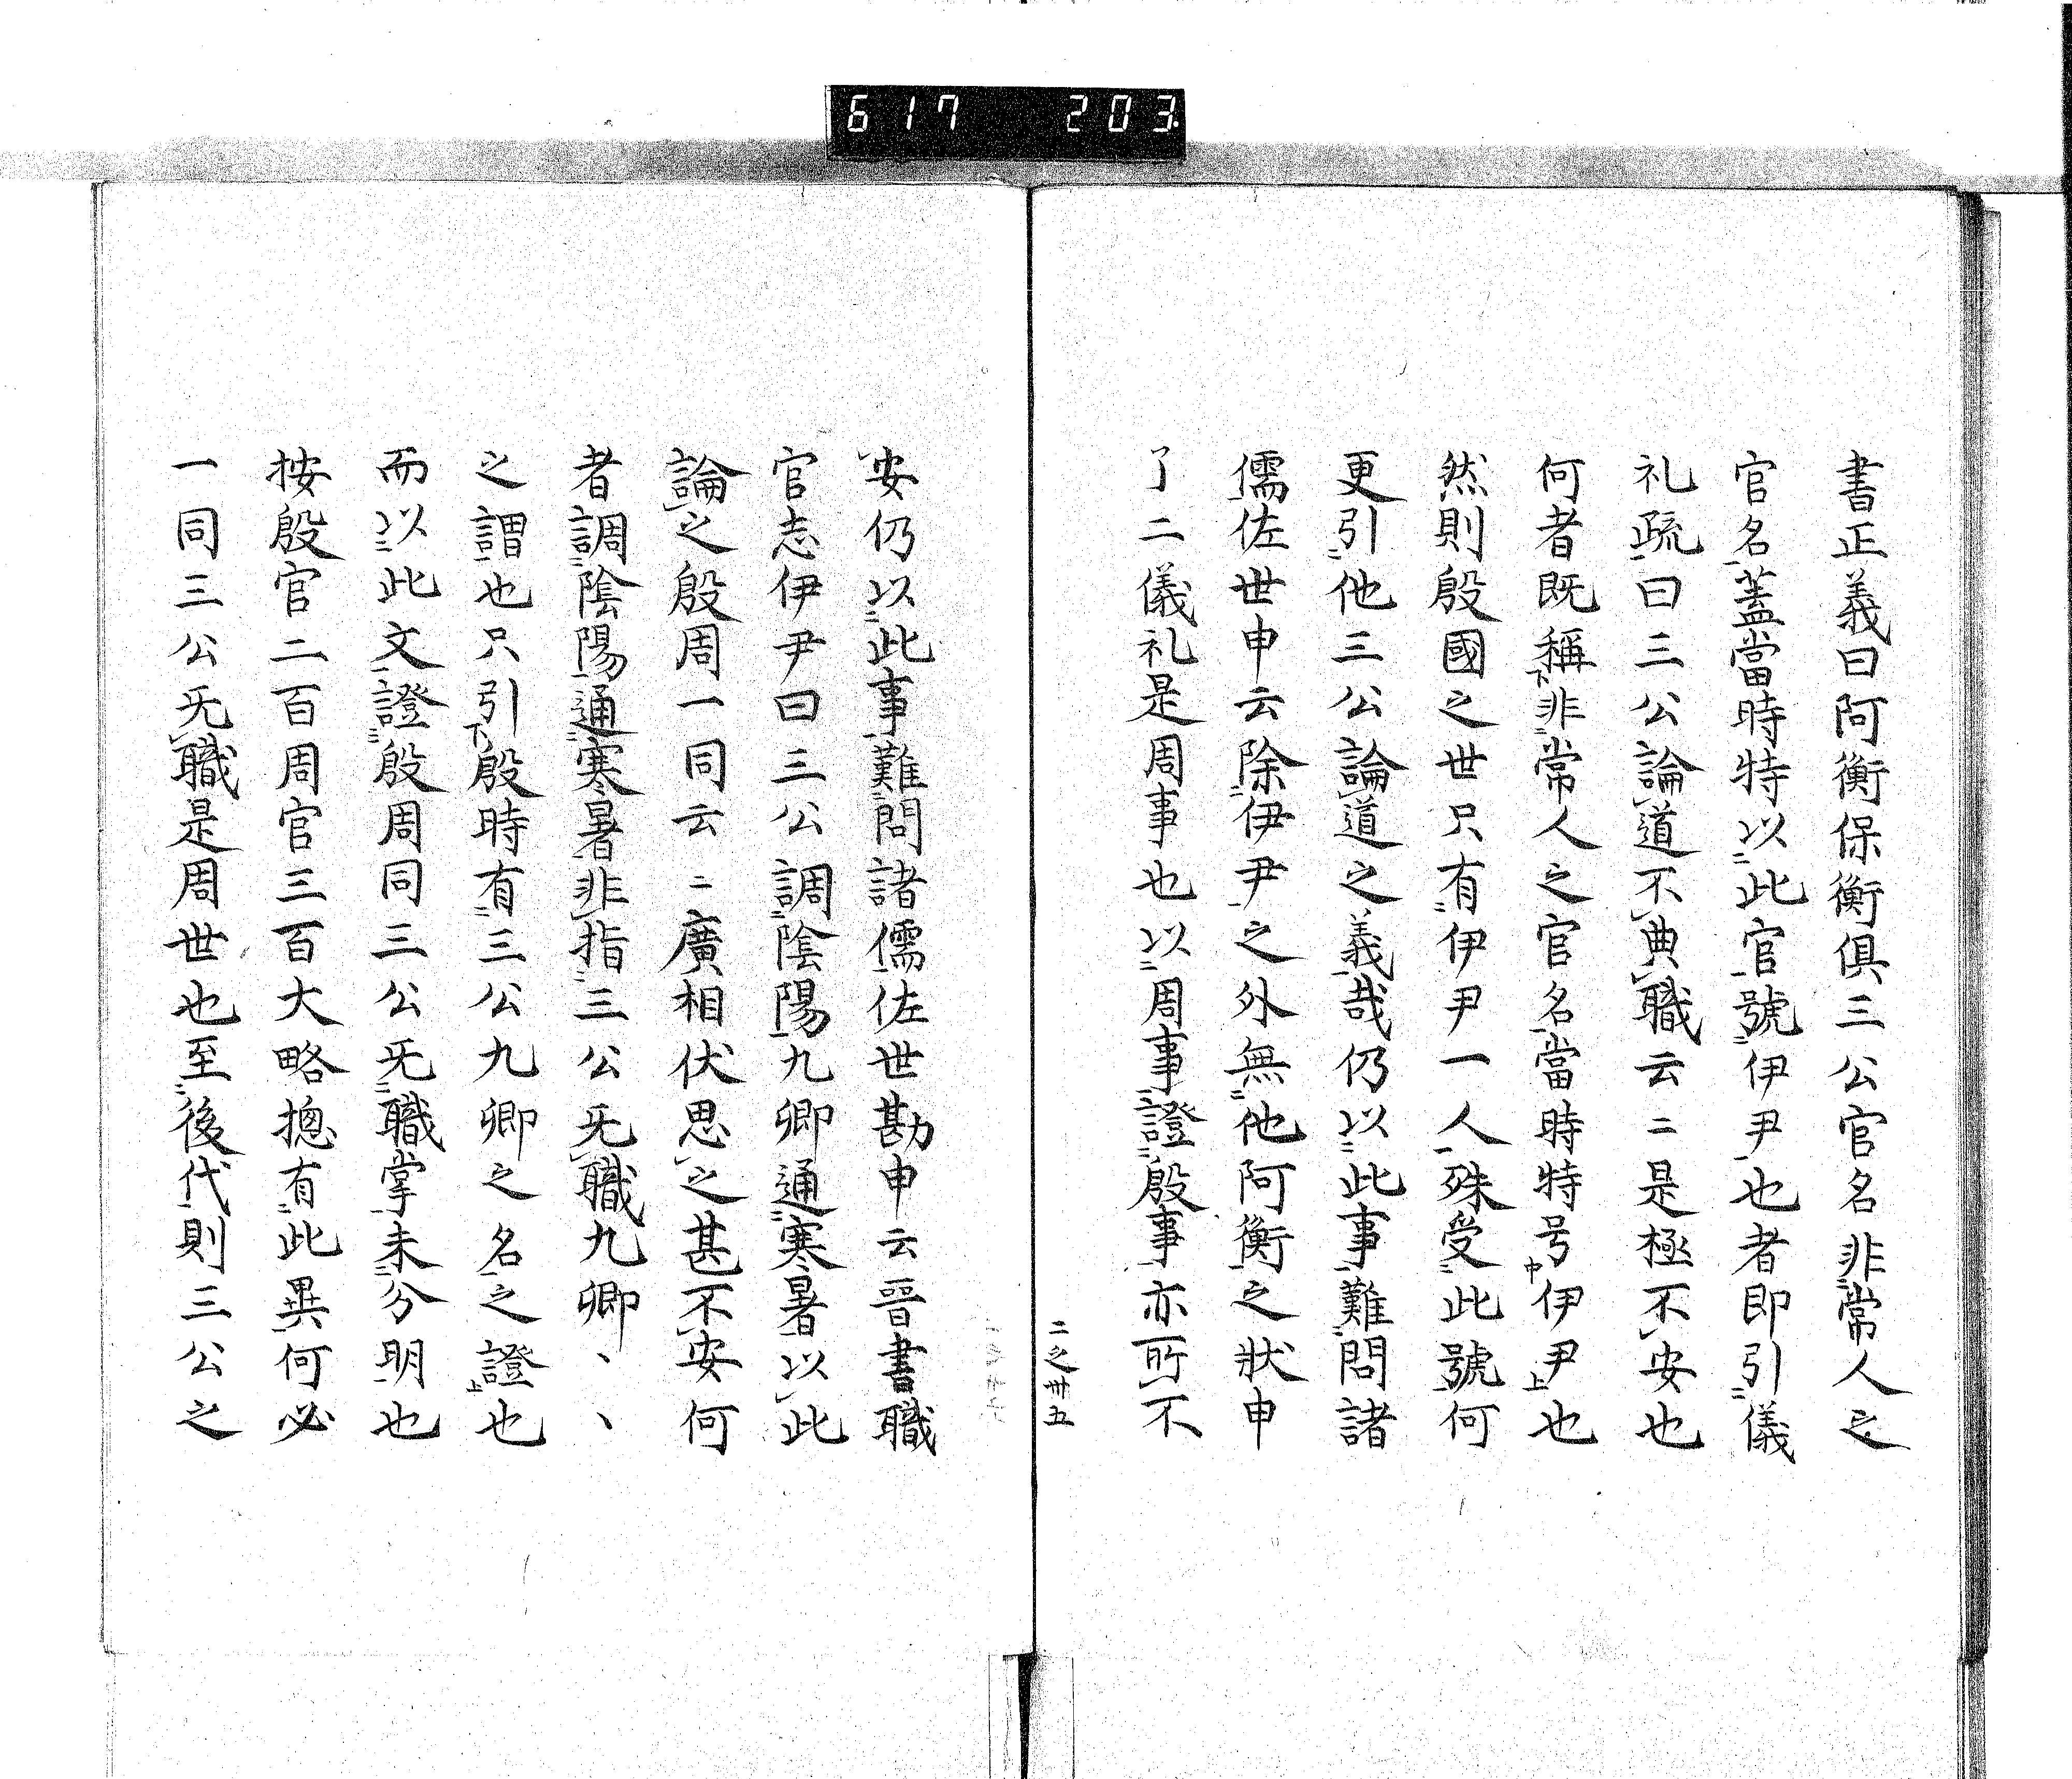 617 203
書正義曰阿衡保衡俱三公官名非常人之
官名蓋當時特以此官號伊尹也者即引儀
礼疏曰三公論道不典職云〻是極不安也
何者既稱非常人之官名當時特号伊尹也
然則殷國之世只有伊尹一人殊受此號何
更引他三公論道之義哉仍以此事難問諸
儒佐世申云除伊尹之外無他阿衡之狀申
了二儀礼是周事也以周事證殷事亦所不
二之卅五
安仍以此事難問諸儒佐世勘申云晉書職
官志伊尹曰三公調陰陽九卿通寒暑以此
論之殷周一同云〻廣相伏思之甚不安何
者調陰陽通寒暑非指三公无職九卿、、
之謂也只引殷時有三公九卿之名之證也
而以此文證殷周同三公无職掌未分明也
按殷官二百周官三百大略揔有此異何必
一同三公无職是周世也至後代則三公之